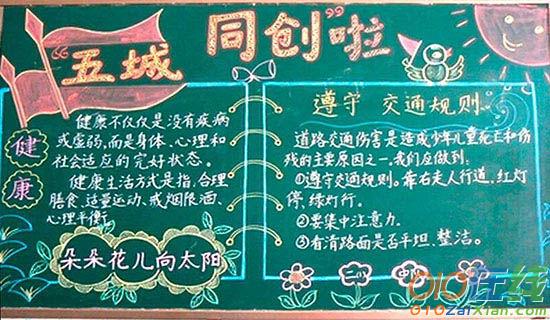 “五城同创”啦
健康
健康不仅仅是没有疾病
或虚弱,而是身体、心理和
社会适应的完好状态。
健康生活方式是指,合理
膳食、适量运动、戒烟限酒、
心理平衡。
朵朵花儿向太阳
遵守 交通规则。
道路交通伤害是造成少年儿童死亡和伤
残的主要原因之一,我们应做到:
①遵守交通规则。靠右走人行道,红灯
停,绿灯行。
②要集中注意力。
③看清路面是否平坦、整洁。
二(
中
010在线
010zaixian.com